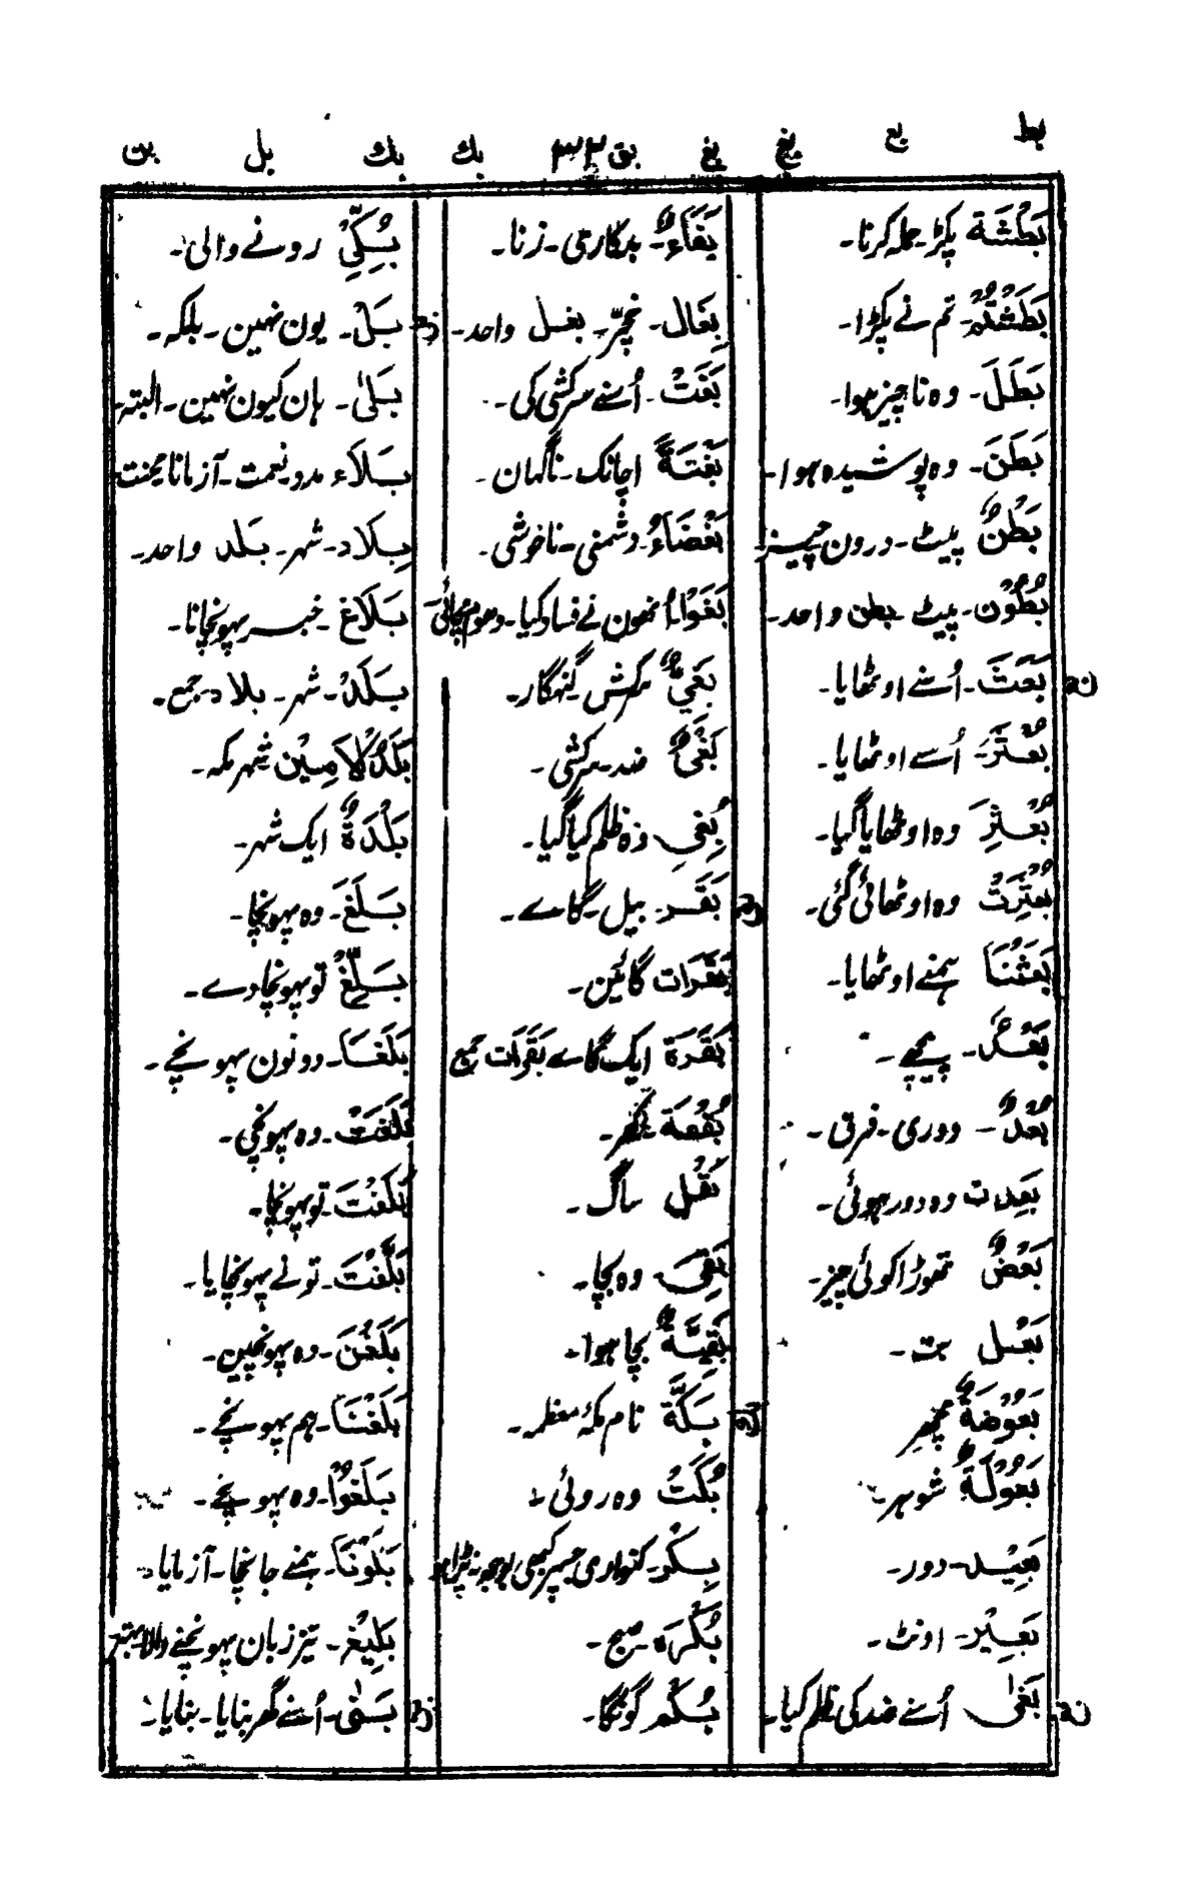 بط بع بغ بغ بق ٣٣ بك بك بل بن
بَطْشَة پکڑ۔ حملہ کرنا۔
بَطَشْتُمْ۔ تم نے پکڑا۔
بَطَلَ۔ وہ ناچیز ہوا۔
بَطَنَ۔ وہ پوشیدہ ہوا۔
بَطْنٌ پیٹ۔ درون چیز
بُطُوْن۔ پیٹ بطن واحد۔
بَعَثَ۔ اُسنے اوٹھایا۔
بُعْثِرَ اُسے اوٹھایا۔
بُعْثِرَ وہ اوٹھایا گیا۔
بُعْثِرَتْ وہ اوٹھائی گئی۔
بَعَثْنَا ہمنے اوٹھایا۔
بَعْدَ۔ پیچھے۔
بُعْدٌ۔ دوری۔ فرق۔
بَعِدت وہ دور ہوئی۔
بَعْضٌ تھوڑا کوئی چیز۔
بَعْل بت۔
بَعُوْضَةٌ مچھر
بُعُوْلَةٌ شوہر۔
بَعِيْد۔ دور۔
بَعِيْر۔ اونٹ۔
بَغٰى اُسنے ضد کی ظلم کیا۔
بِغَاءٌ۔ بدکاری۔ زنا۔
بِغَال۔ خچر۔ بغل واحد۔
بَغَتْ۔ اُسنے سرکشی کی۔
بَغْتَةً اچانک۔ ناگہان۔
بَغْضَاءُ۔ دشمنی۔ ناخوشی۔
بَغَوْا۔ اُنھون نے فساد کیا۔ دھوم مچائی۔
بَغِيٌّ سرکش گنہگار۔
بَغْيٌ ضد۔ سرکشی۔
بُغِيَ وہ ظلم کیا گیا۔
بَقَر۔ بیل۔ گاے۔
بَقَرَات گائین۔
بَقَرَة ایک گاے بَقَرَات جمع
بُقْعَة۔ گھر۔
بَقْل ساگ۔
بَقِىَ۔ وہ بچا۔
بَقِيَّةٌ بچا ہوا۔
بَكَّة نام مکۂ معظمہ۔
بَكَتْ وہ روئی۔
بِكْر۔ کنواری جسپر کبھی بوجھ نہ پڑا ہو
بُكْرَة۔ صبح۔
بُكْم گونگا۔
بُكِيّ رونے والی۔
بَلْ۔ یون نہین۔ بلکہ۔
بَلٰى۔ ہان کیون نہین۔ البتہ۔
بَلَاء مدد۔ نعمت۔ آزمانا محنت۔
بِلَاد۔ شہر۔ بَلَد واحد۔
بَلَاغ۔ خبر پہونچانا۔
بَلَدٌ۔ شہر۔ بلاد۔ جمع۔
بَلَدُ الْاَمِيْن شہر مکہ۔
بَلْدَةٌ ایک شہر۔
بَلَغَ۔ وہ پہونچا۔
بَلِّغْ تو پہونچا دے۔
بَلَغَا۔ دونون پہونچے۔
بَلَغَتْ۔ وہ پہونچی۔
بَلَغْتَ۔ تو پہونچا۔
بَلَّغْتَ۔ تونے پہونچایا۔
بَلَغْنَ۔ وہ پہونچین۔
بَلَغْنَا۔ ہم پہونچے۔
بَلَغُوْا۔ وہ پہونچے۔
بَلَوْنَا۔ ہمنے جانچا۔ آزمایا۔
بَلِيْغ۔ تیز زبان پہونچنے والا۔ بہتر
بَنٰى۔ اُسنے گھر بنایا۔ بنایا۔